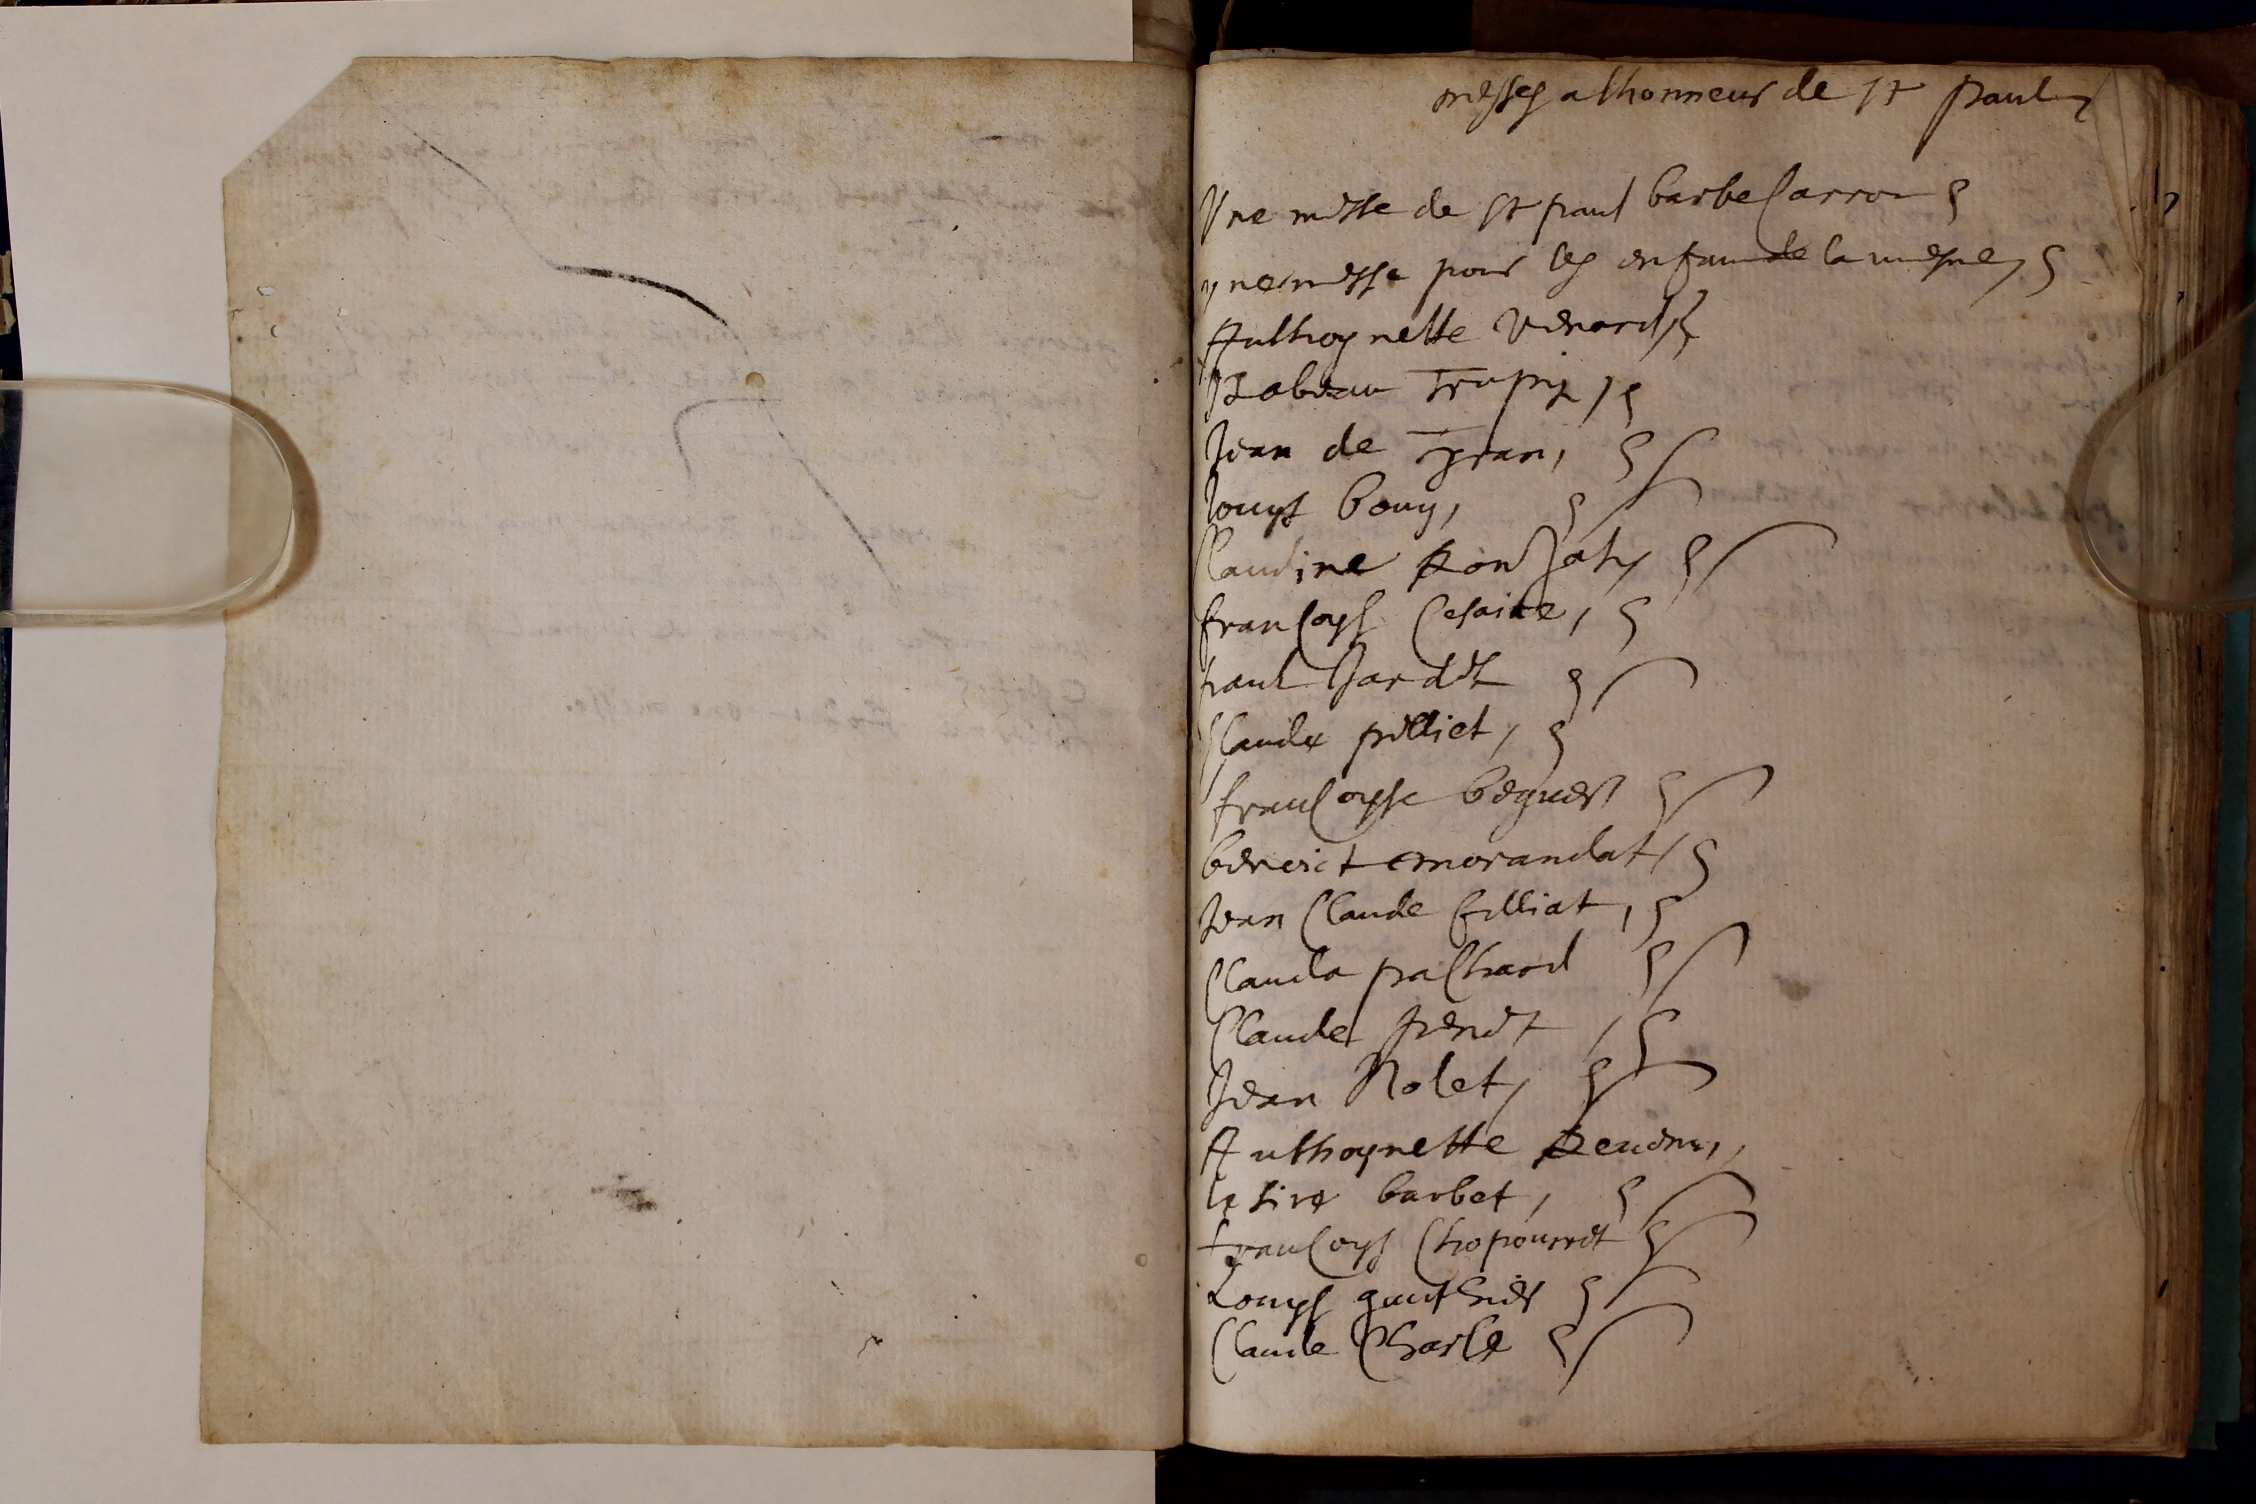 messes a lhonneur de st paul
Vne messe de st paul barbe Carron
vne messe pour les enfan de la mesme
Anthoynette Venard
Isabeau
Jean de
Louys bouy
Claudine Ponsaty
francoys Cesaire
paul Jardet
Claude pilliet
francoyse beguest
benoict morandat
Jean Claude filliat
Clauda pachard
Claude
Jean Nolet
Anthoynette
le sire barbet
francoys Chopourret
Louys gauthier
Claude Charle